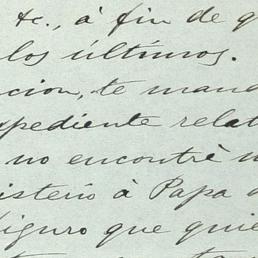 &c., á fin de q
los últimos.
cion, te mand
xpediente relat
no encontré n
isterio á Papa
iguro que quie